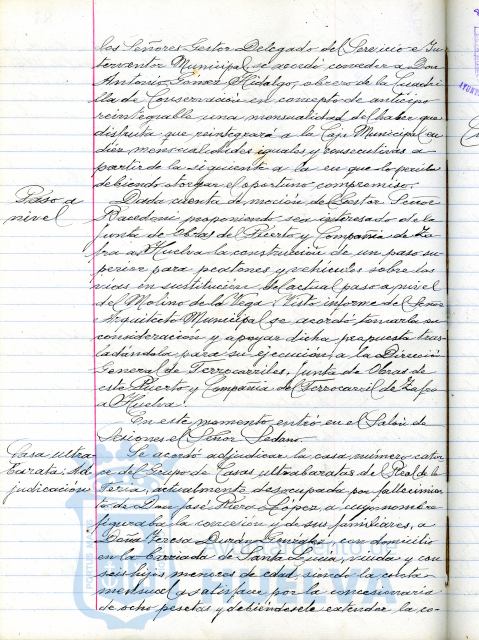 los Señores Gestor Delegado del Servicio e In-
terventor Municipal, se acordó conceder a Don
Antonio Gómez Hidalgo, obrero de la Cuadri-
lla de Conservación en concepto de anticipo
reintegrable una mensualidad del haber que
disfruta que reintegrará a la Caja Municipal en
diez mensualidades iguales y consecutivas a
partir de la siguiente a la en que lo perciba
debiendo otorgar el oportuno compromiso.
Paso a
nivel
Dada cuenta de moción del Gestor Señor
proponiendo sea interesado de la
Junta de Obras del Puerto y Compañía de Za-
fra a Huelva la construcción de un paso su-
perior para peatones y vehículos sobre las
vías en sustitución del actual paso a nivel
del Molino de la Vega. Visto informe del Señor
Arquitecto Municipal se acordó tomarla en
consideración y apoyar dicha propuesta tras-
ladándola para su ejecución, a la Dirección
General de Ferrocarriles, Junta de Obras de
este Puerto y Compañía del Ferrocarril de Zafra
a Huelva.
En este momento entró en el Salón de
Sesiones el Señor Sedano.
Casa ultra-
barata. Ad-
judicación
Se acordó adjudicar la casa número cator-
ce del Grupo de Casas ultrabaratas del Real de la
Feria, actualmente desocupada por fallecimien-
to de Don José Riero López, a cuyo nombre
figuraba la concesión y de sus familiares, a
Doña Teresa Durán González, con domicilio
en la barriada de Santa Lucía, viuda y con
seis hijos menores de edad, siendo la cuota
mensual y satisfacer por la concesionaria
de ocho pesetas y debiéndosele extender la co-
Ayuntamiento de
HUELVA